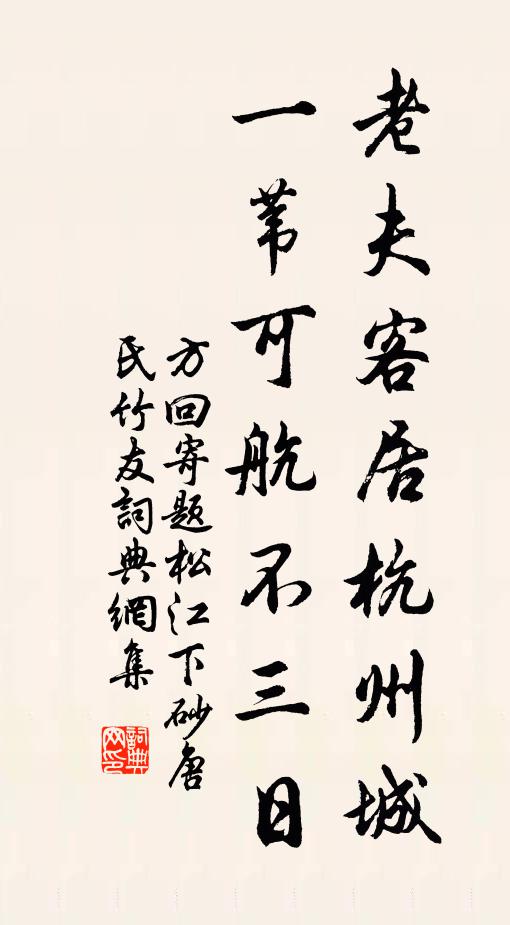 老夫客居杭州城
一苇可航不三日
方回寄题松江下砂唐
氏竹友詞典網集
詞典网印